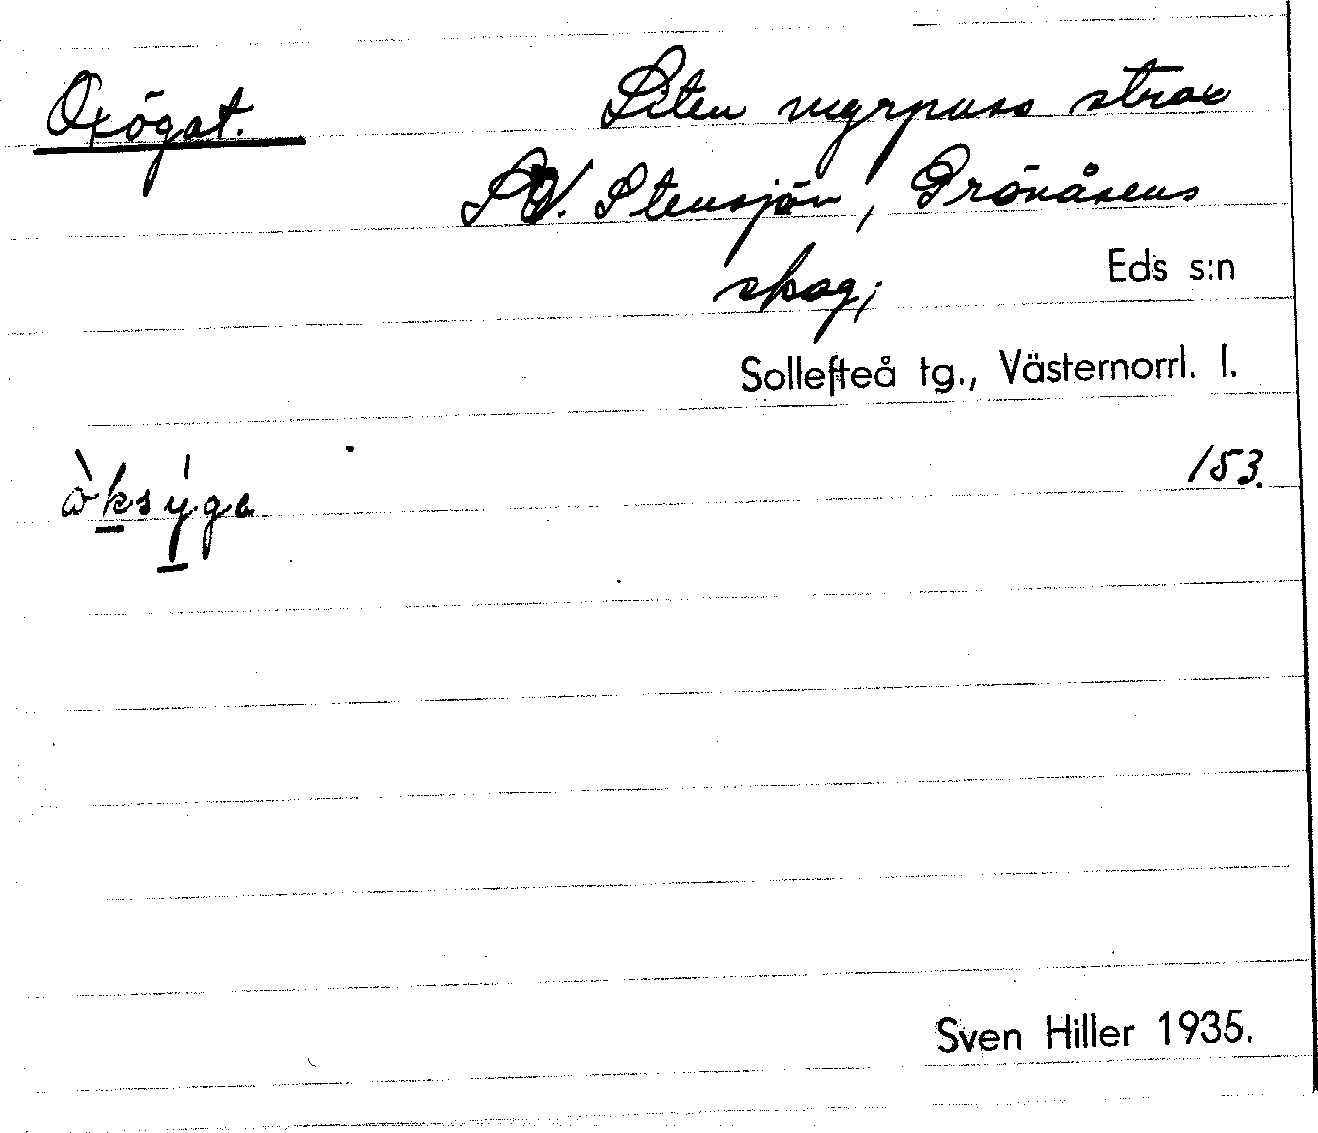 Oxögat.
Liten myrpuss strax
SV. Stensjön, Grönåsens
skog;
Eds s:n
Sollefteå tg., Västernorrl. l.
153.
Sven Hiller 1935.